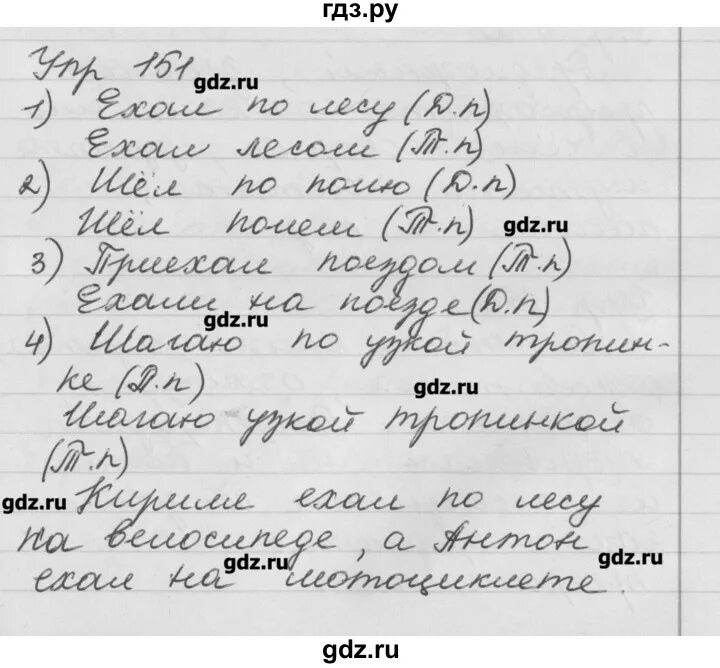 гдз.ру
Упр 151
gdz.ru
1) Ехал по лесу (Д.п)
Ехал лесом (Т.п)
2) Шёл по полю (Д.п)
Шёл полем (Т.п) gdz.ru
3) Приехал поездом (Т.п)
Ехали на поезде (D.п)
gdz.ru
4) Шагаю по узкой тропин-
ке (Д.п) gdz.ru
Шагаю узкой тропинкой
(Т.п)
gdz.ru Кирилл ехал по лесу
на велосипеде, а Антон
ехал на мотоциклете.
gdz.ru gdz.ru
gdz.ru